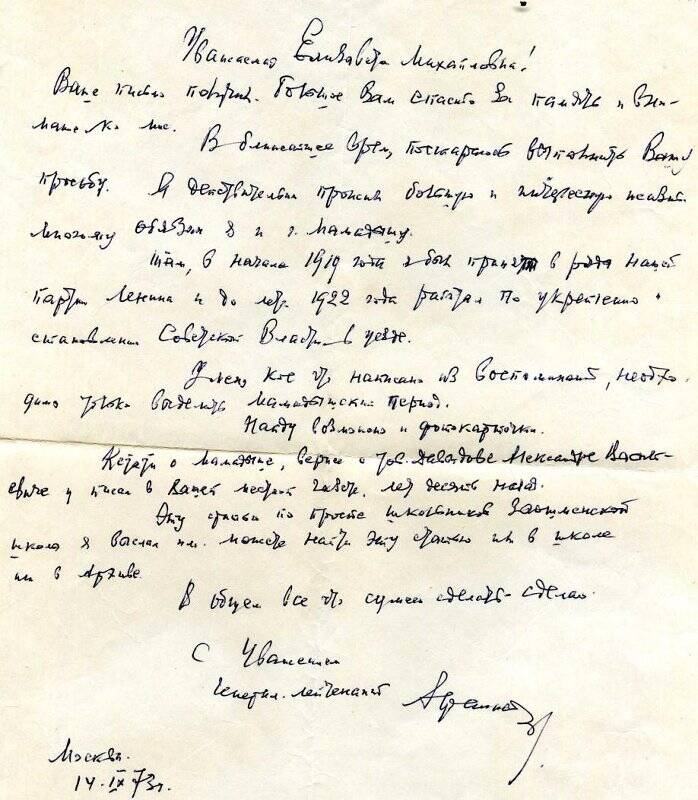 Уважаемая Елизавета Михайловна!
Ваше письмо получил. Большое Вам спасибо за память и вни-
мание ко мне.
В ближайшее время, постараюсь выполнить Вашу
просьбу. Я действительно прошел большую и интересную жизнь.
Многому обязан я и г. Мамадышу.
Там, в начале 1919 года я был принят в ряды нашей
партии Ленина и до лета 1922 года работал по укреплению
становлению Советской Власти в уезде.
У меня кое что написано из воспоминаний, необхо-
димо только выделить Мамадышский период.
Найду возможно и фотокарточки.
Кстати о Мамадыше, вернее о тов. Давыдове Александре Василь-
евиче я писал в Вашей местной газете, лет десять назад.
Эту статью по просьбе школьников
школы я выслал им. можете найти эту статью или в школе
или в Архиве.
В общем все что сумею сделать - сделаю.
С Уважением
Генерал-лейтенант
Москва.
14.IX 73г.